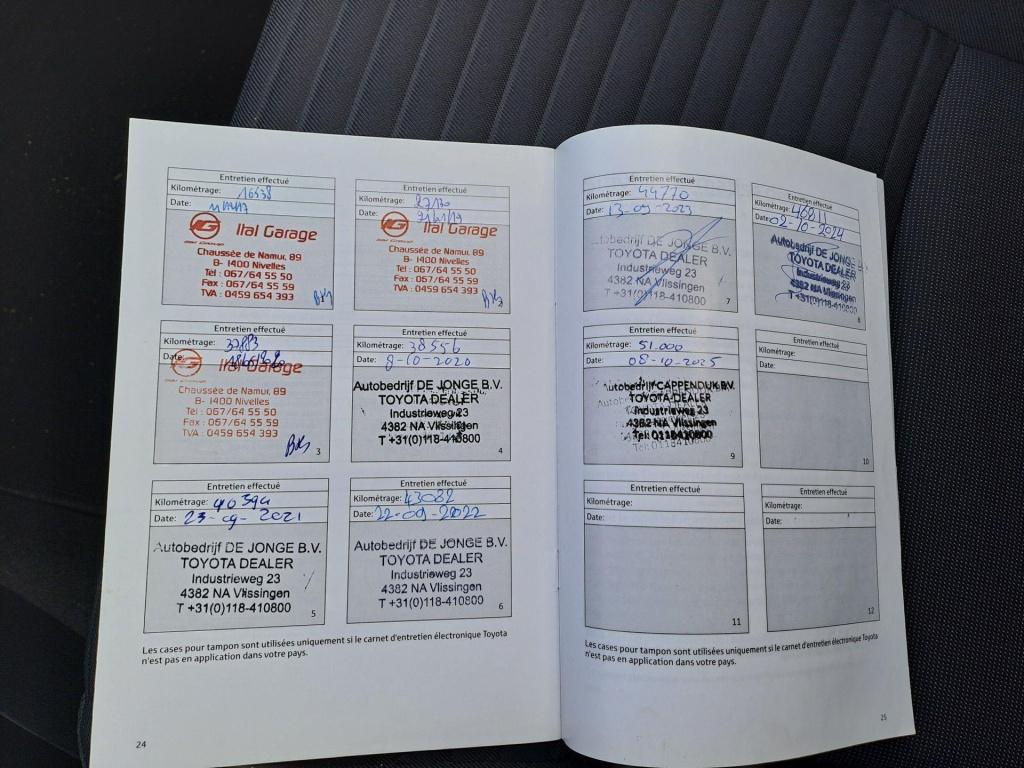 Entretien effectué
Kilométrage: 16538
Date:
Ital Garage
Chaussée de Namur, 89
B- 1400 Nivelles
Tél : 067/64 55 50
Fax : 067/64 55 59
TVA : 0459 654 393
Entretien effectué
Kilométrage: 27130
Date:
Ital Garage
Chaussée de Namur, 89
B- 1400 Nivelles
Tél : 067/64 55 50
Fax : 067/64 55 59
TVA : 0459 654 393
Entretien effectué
Kilométrage:
Date:
Ital Garage
Chaussée de Namur, 89
B- 1400 Nivelles
Tél : 067/64 55 50
Fax : 067/64 55 59
TVA : 0459 654 393
3
Entretien effectué
Kilométrage: 38556
Date: 8-10-2020
Autobedrijf DE JONGE B.V.
TOYOTA DEALER
Industrieweg 23
4382 NA Vlissingen
T +31(0)118-410800
4
Entretien effectué
Kilométrage: 40394
Date: 23-09-2021
Autobedrijf DE JONGE B.V.
TOYOTA DEALER
Industrieweg 23
4382 NA Vlissingen
T +31(0)118-410800
5
Entretien effectué
Kilométrage: 43082
Date: 22-09-2022
Autobedrijf DE JONGE B.V.
TOYOTA DEALER
Industrieweg 23
4382 NA Vlissingen
T +31(0)118-410800
6
Les cases pour tampon sont utilisées uniquement si le carnet d'entretien électronique Toyota
n'est pas en application dans votre pays.
24
Entretien effectué
Kilométrage: 44770
Date: 13-09-2023
Autobedrijf DE JONGE B.V.
TOYOTA DEALER
Industrieweg 23
4382 NA Vlissingen
T +31(0)118-410800
7
Entretien effectué
Kilométrage: 46211
Date: 02-10-2024
Autobedrijf DE JONGE B.V.
TOYOTA DEALER
Industrieweg 23
4382 NA Vlissingen
T +31(0)118-410800
8
Entretien effectué
Kilométrage: 51.000
Date: 08-10-2025
Autobedrijf CAPPENDIJK B.V.
TOYOTA DEALER
Industrieweg 23
4382 NA Vlissingen
Tel: 0118410800
9
Entretien effectué
Kilométrage:
Date:
10
Entretien effectué
Kilométrage:
Date:
11
Entretien effectué
Kilométrage:
Date:
12
Les cases pour tampon sont utilisées uniquement si le carnet d'entretien électronique Toyota
n'est pas en application dans votre pays.
25